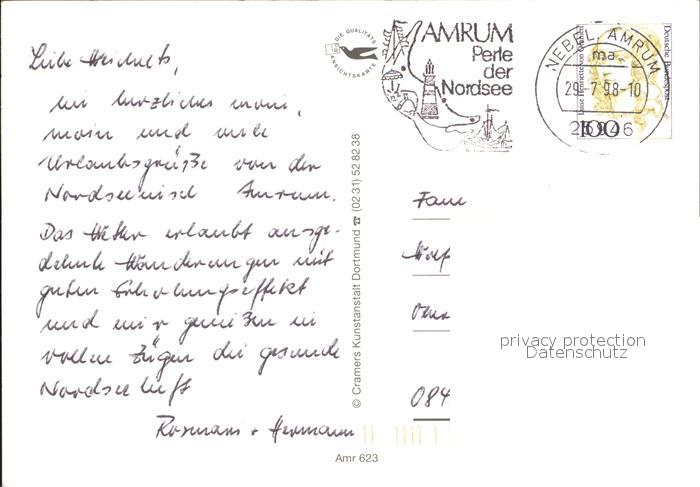 Liebe Weichelts,
ein herzliches moin,
moin und viele
Urlaubsgrüße von der
Nordseeinsel Amrum.
Das Wetter erlaubt ausge-
dehnte Wanderungen mit
guten Erholungseffekt
und wir genießen in
vollen Zügen die gesunde
Nordseeluft
Rosmarie + Hermann
DIE QUALITÄTS
ANSICHTSKARTE
AMRUM
Perle
der
Nordsee
NEBEL, AMRUM
ma
29.-7.98-10
25946
Deutsche Bundespost
100
© Cramers Kunstanstalt Dortmund ☎ (02 31) 52 82 38
Fam
Wolf
084
privacy protection
Datenschutz
Amr 623